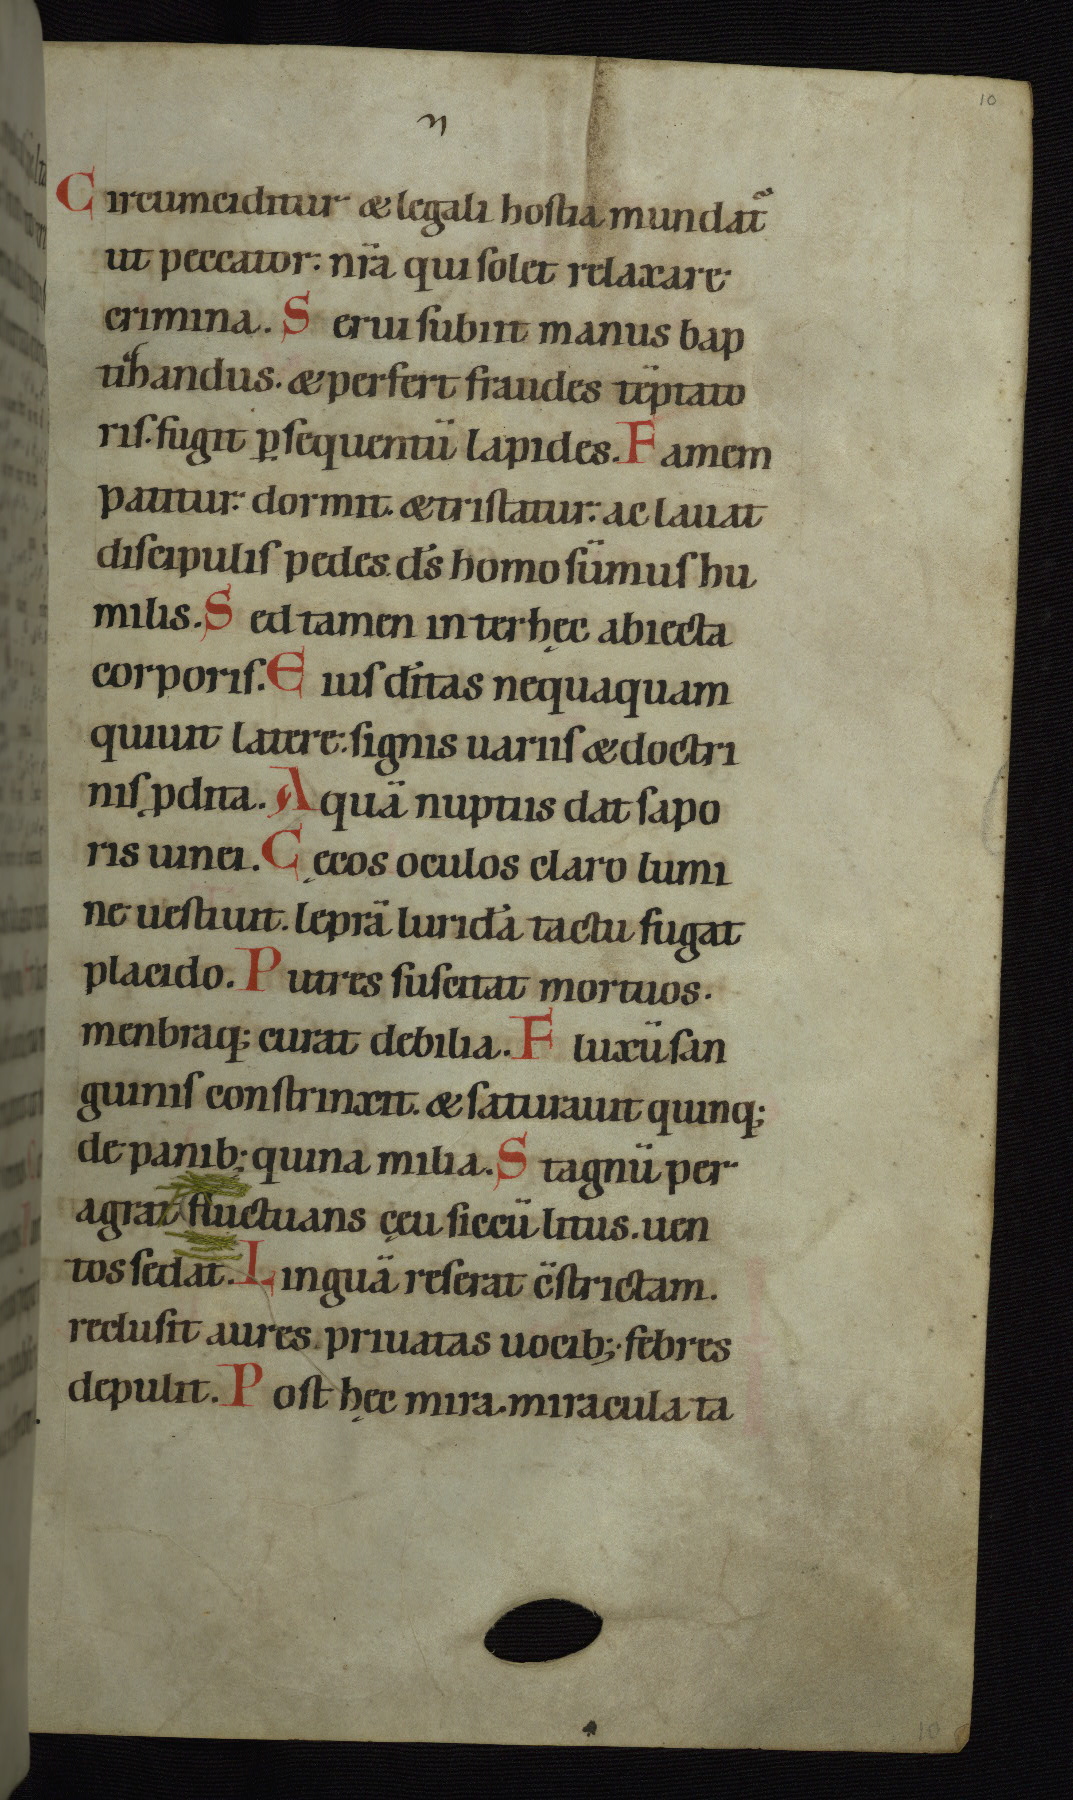 10
n
Circumciditur & legali hostia mundat᷑
ut peccator: nr̄a qui solet relaxare
crimina. Serui subiit manus bap
tizandus. & perfert fraudes tēptato
ris. fugit ꝑsequentū lapides. Famem
patitur: dormit. & tristatur: ac lauat
discipulis pedes. ds̄ homo sūmus hu
milis. Sed tamen inter hęc abiecta
corporis. Eius dītas nequaquam
quiuit latere: signis uariis & doctri
nis ꝓdita. Aquā nuptiis dat sapo
ris uinei. Cęcos oculos claro lumi
ne uestiuit. leprā luridā tactu fugat
placido. Putres suscitat mortuos.
menbraq; curat debilia. Fluxū san
guinis constrinxit. & saturauit quinq;
de panib; quina milia. Stagnū per
agrat fluctuans ceu siccū litus. uen
tos sedat. Linguā reserat c̄strictam.
reclusit aures priuatas uocib; febres
depulit. Post hęc mira miracula ta
10